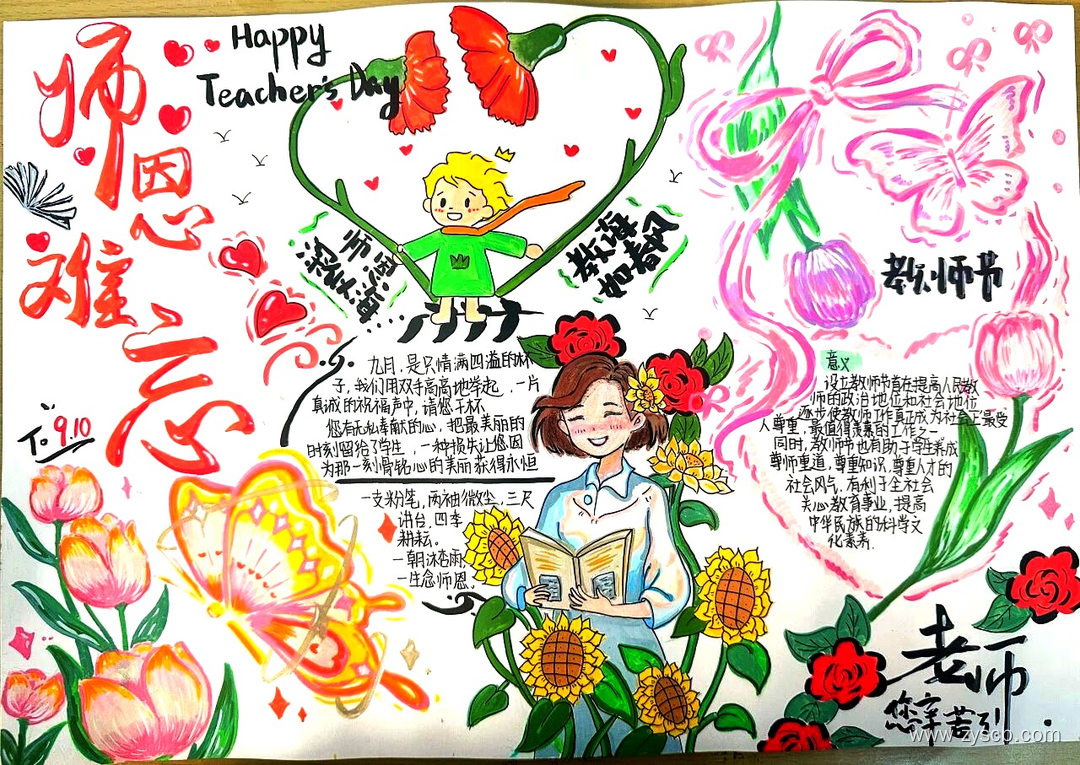 师
恩
难
忘
To 9.10
Happy
Teacher's Day
师恩海
深
教诲
如春风
教师节
九月，是只情满四溢的杯
子，我们用双手高高地举起，一片
真诚的祝福声中，请您干杯
您有无私奉献的心，把最美丽的
时刻留给了学生，一种损失让您因
为那一刻骨铭心的美丽获得永恒
一支粉笔，两袖微尘，三尺
讲台，四季
耕耘。
一朝沐杏雨，
一生念师恩。
意义
设立教师节旨在提高人民教
师的政治地位和社会地位
逐步使教师工作真正成为社会上最受
人尊重，最值得羡慕的工作之一
同时，教师节也有助于学生养成
尊师重道，尊重知识，尊重人才的
社会风气，有利于全社会
关心教育事业，提高
中华民族的科学文
化素养.
老师
您辛苦了!
www.zysco.com